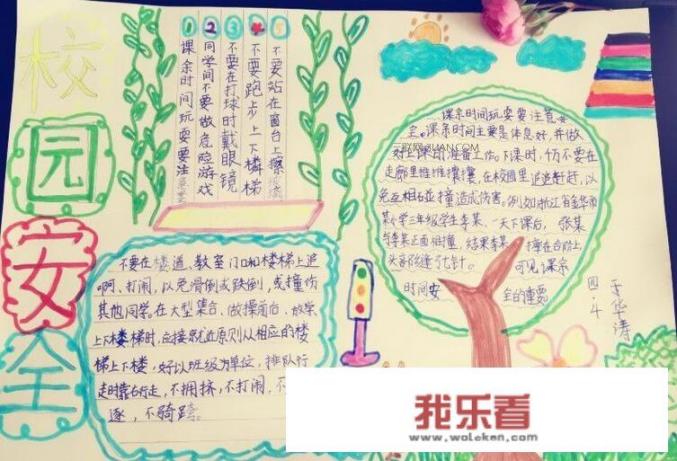 校
园
安
全
①
课余时间玩耍要注
②
同学间不要做危险游戏
③
不要在打球时戴眼镜
不要跑步上下楼梯
不要站在窗台上擦
不要在楼道、教室门口和楼梯上追
啊、打闹,以免滑倒或跌倒,或撞伤
其他同学。在大型集合、做操前后、放学
上下楼梯时,应按就近原则从相应的楼
梯上下楼,好以班级为单位,排队行
走时靠右行走,不拥挤,不打闹,不
逐,不骑跨。
课余时间玩耍要注意安
全。课余时间主要是休息好,并做
好上课的准备工作。下课时,千万不要在
走廊里推推攘攘,在校园里追追赶赶,以
免互相碰撞造成伤害。例如浙江省金华市
某小学三年级学生李某,一天下课后,张某
与李某正面相撞,结果李某撞在台阶上,
头部缝了七针。可见课余
时间安全的重要
四.4
于华涛
我乐看
www.woleken.com